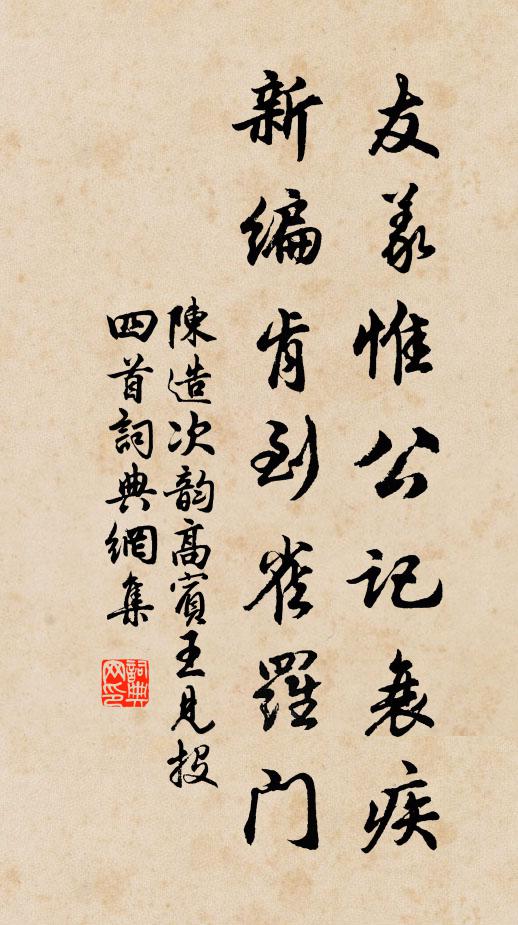 友義惟公記衰疾
新編肯到雀羅門
陳造次韵高賓王見投
四首詞典網集
詞典網印